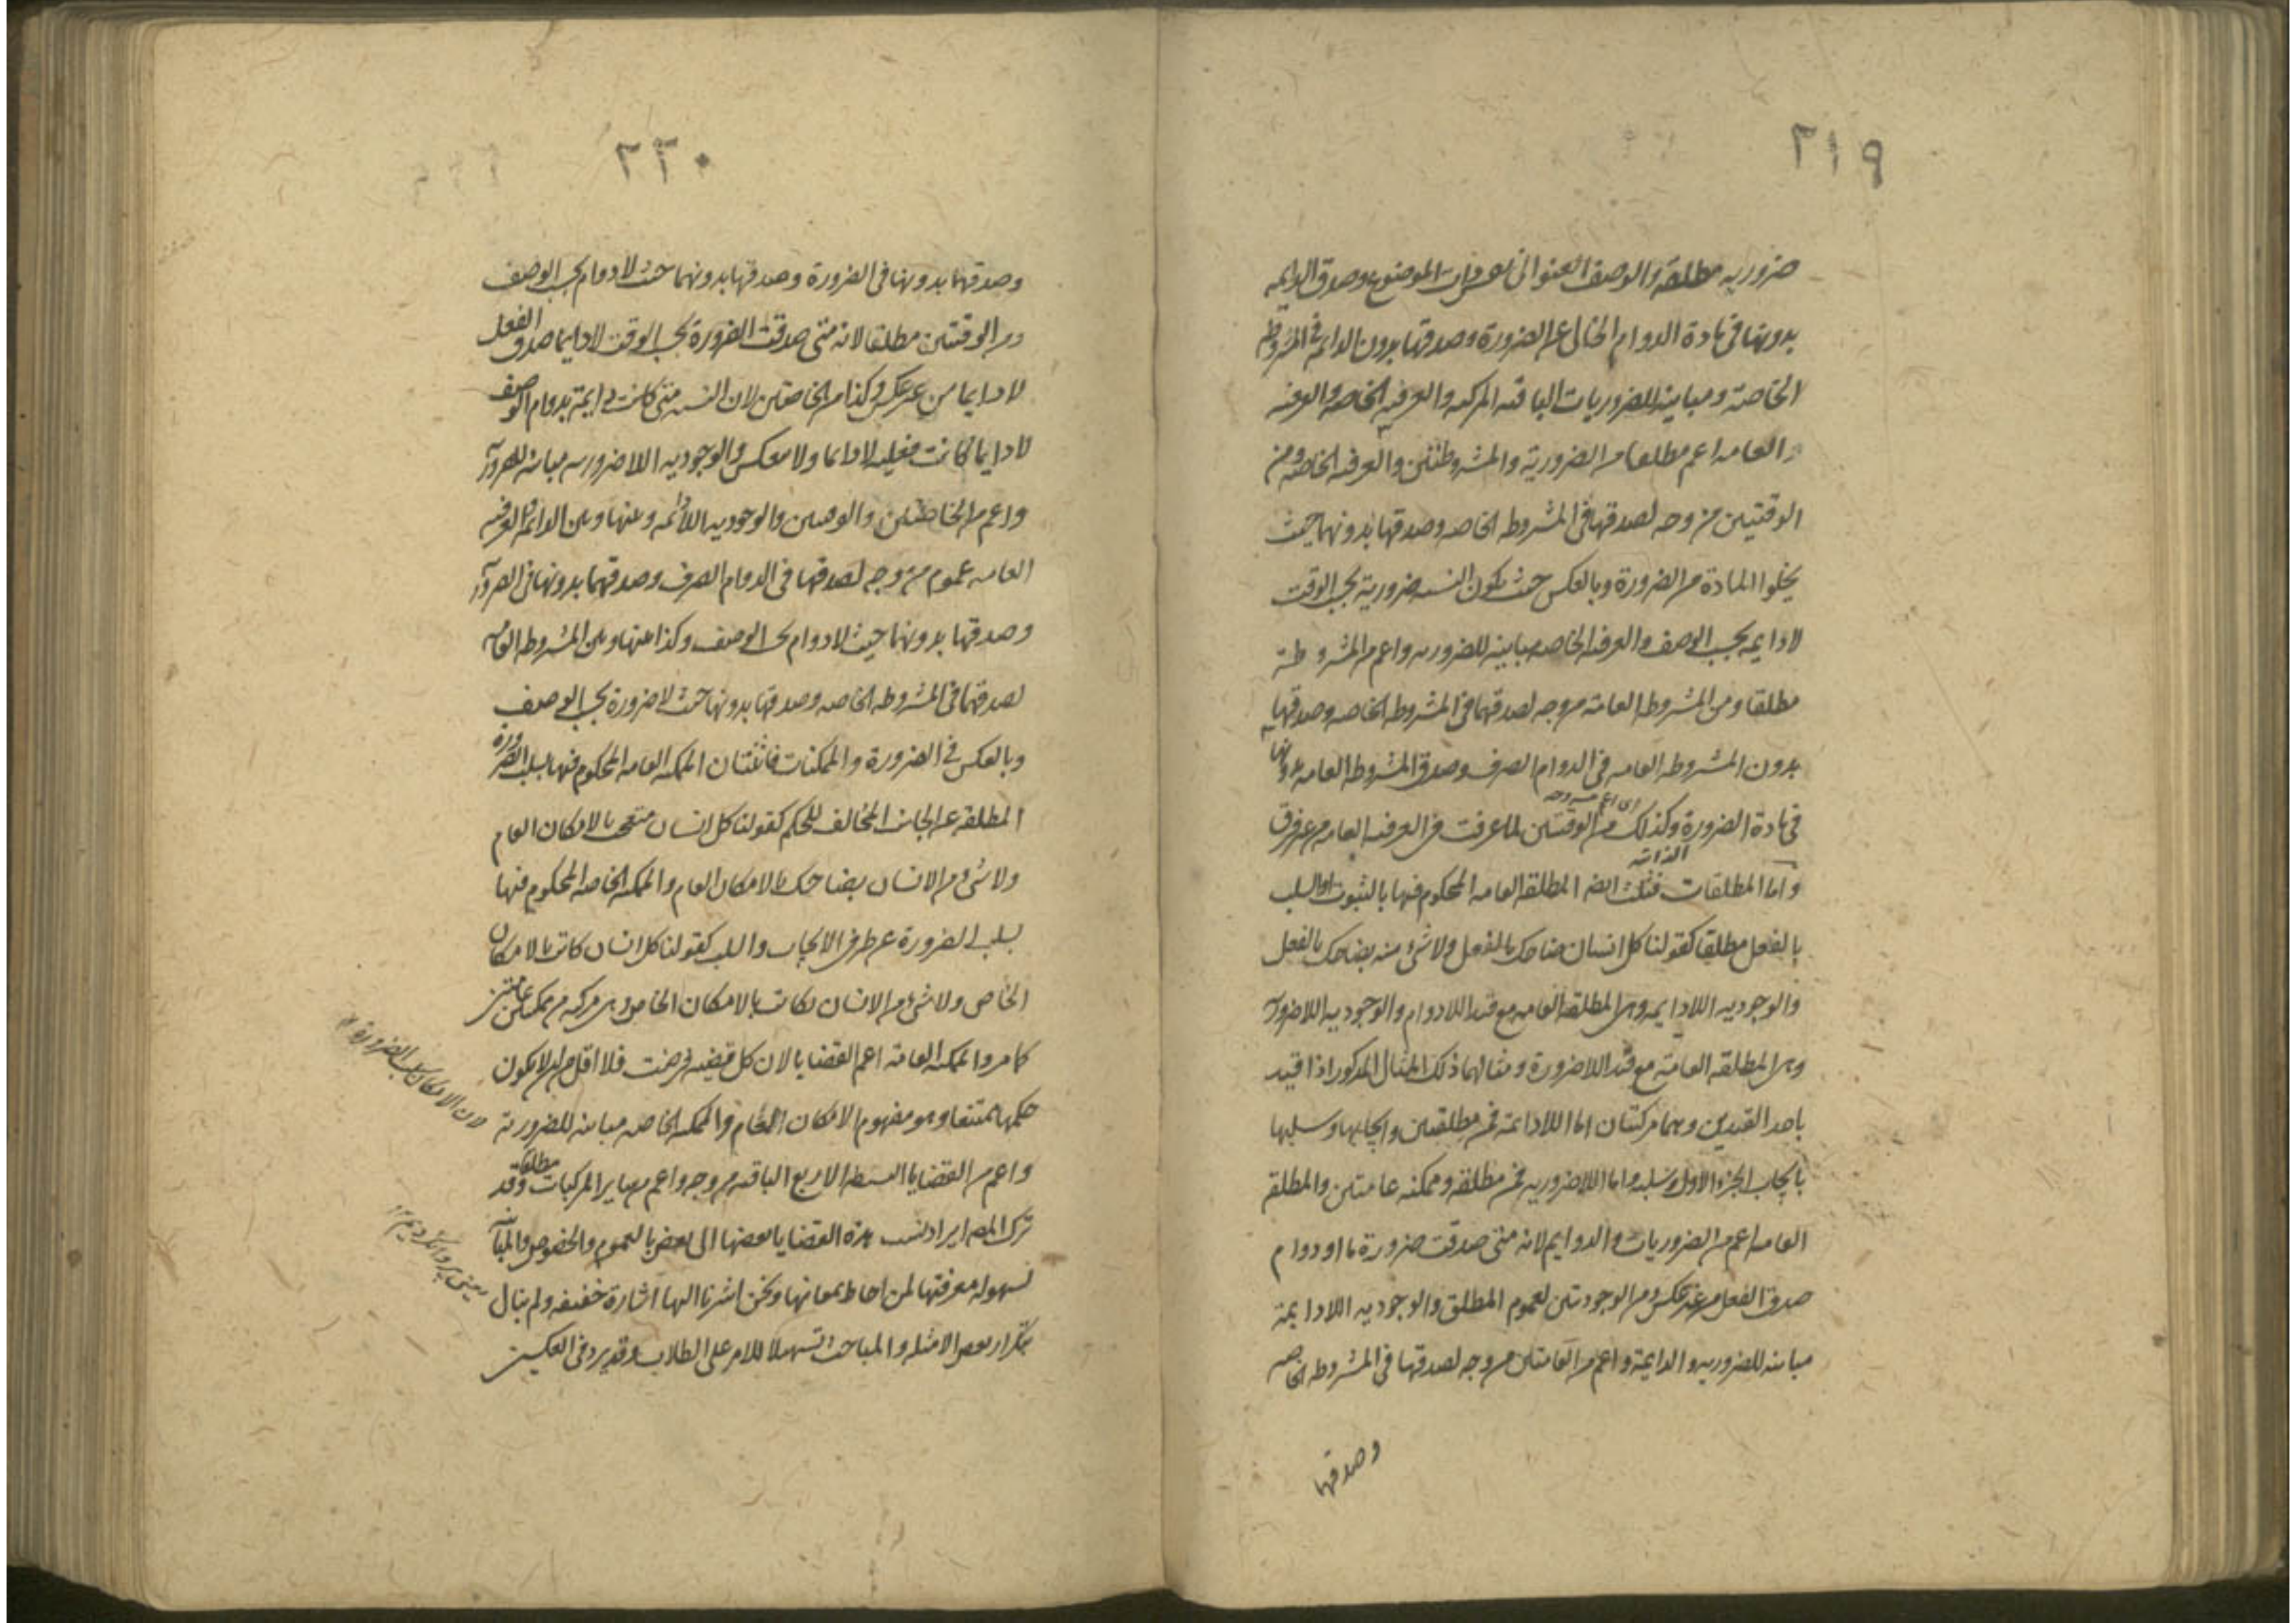 ٢١٩
ضروريه مطلقة والوصف العنوانى نفس ذات الموضوع وصدق الدايمه
بدونها فى مادة الدوام الخالى عن الضرورة وصدقها بدون الدايمه فى المشروطة
الخاصة ومباينة للضروريات الباقيه المركبه والعرفيه الخاصه والعرفيه
العامه اعم مطلقا من الضرورية والمشروطتين والعرفيه الخاصه ومن
الوقتيتين من وجه لصدقها فى المشروطه الخاصه وصدقها بدونهما حيث
يخلوا المادة من الضرورة وبالعكس حيث يكون النسبه ضرورية بحسب الوقت
لا دايمه بحسب الوصف والعرفيه الخاصه مباينه للضروريه واعم من المشروطة
مطلقا ومن المشروطه العامة من وجه لصدقهما فى المشروطه الخاصه وصدقها
بدون المشروطه العامه فى الدوام الصرف وصدق المشروطه العامه بدونها
فى مادة الضرورة وكذلك من الوقتيتين لما عرفت فى العرفيه العامه من غير فرق
اى اعم من وجه
واما المطلقات فثلث ايضا المطلقه العامه المحكوم فيها بالثبوت او السلب
بالفعل مطلقا كقولنا كل انسان ضاحك بالفعل ولا شئ منه بضاحك بالفعل
والوجوديه اللادايمه وهى المطلقه العامه مع قيد اللادوام والوجوديه اللاضروريه
وهى المطلقه العامة مع قيد اللاضرورة ومثالهما ذلك المثال المذكور اذا قيد
باحد القيدين وهما مركبتان اما اللادائمة فمن مطلقتين وايجابها وسلبها
بايجاب الجزء الاول وسلبه واما اللاضروريه فمن مطلقه وممكنه عامتين والمطلقه
العامه اعم من الضروريات والدوايم لانه متى صدقت ضرورة ما او دوام
صدق الفعل من غير عكس ومن الوجوديتين لعموم المطلق والوجوديه اللادايمة
مباينه للضروريه والدايمة واعم من العامتين من وجه لصدقها فى المشروطه الخاصه
وصدقها
٢٢٠
وصدقهما بدونها فى الضرورة وصدقها بدونهما حيث لا دوام بحسب الوصف
ومن الوقتيتين مطلقا لانه متى صدقت الضرورة بحسب الوقت لا دايما صدق الفعل
لا دايما من غير عكس وكذا من الخاصتين لان النسبه متى كانت دايمة بدوام الوصف
لا دايما كانت فعليه لا دايما ولا ينعكس والوجوديه اللاضروريه مباينه للضرورية
واعم من الخاصتين والوقتيتين والوجوديه اللادائمه وبينها وبين الدائمه والعرفيه
العامه عموم من وجه لصدقها فى الدوام الصرف وصدقهما بدونها فى الضرورة
وصدقها بدونهما حيث لا دوام بحسب الوصف وكذا بينها وبين المشروطه العامه
لصدقهما فى المشروطه الخاصه وصدقها بدونها حيث لا ضرورة بحسب الوصف
وبالعكس فى الضرورة والممكنات فاثنتان الممكنه العامه المحكوم فيها بسلب الضرورة
المطلقه عن الجانب المخالف للحكم كقولنا كل انسان متعجب بالامكان العام
ولا شئ من الانسان بضاحك بالامكان العام والممكنه الخاصه المحكوم فيها
بسلب الضرورة عن طرفى الايجاب والسلب كقولنا كل انسان كاتب بالامكان
الخاص ولا شئ من الانسان بكاتب بالامكان الخاص وهى مركبه من ممكنتين عامتين
كما مر والممكنه العامة اعم القضايا لان كل قضيه فرضت فلا اقل من ان لا يكون
حكمها ممتنعا وهو مفهوم الامكان العام والممكنه الخاصه مباينه للضرورية
واعم من القضايا البسيطه الاربع الباقيه من وجه واعم من ساير المركبات مطلقا وقد
ترك المصـ ايراد نسب هذه القضايا بعضها الى بعض بالعموم والخصوص والمباينه
لسهوله معرفتها لمن احاط بمعانيها ونحن اشرنا اليها اشارة خفيفه ولم نبال
بتكرار بعض الامثله والمباحث تسهيلا للامر على الطلاب وقد يرد فى العكسين
لان الامكان سلب الضرورة